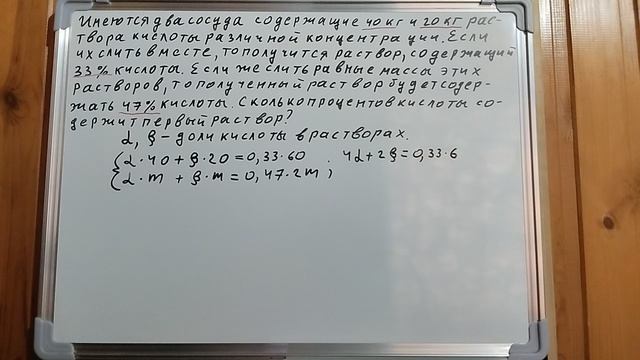 Имеются два сосуда содержащие 40 кг и 20 кг рас-
твора кислоты различной концентрации. Если
их слить вместе, то получится раствор, содержащий
33% кислоты. Если же слить равные массы этих
растворов, то полученный раствор будет содер-
жать 47% кислоты. Сколько процентов кислоты со-
держит первый раствор?
α, β - доли кислоты в растворах.
{α·40+β·20=0,33·60 . 4α+2β=0,33·6
{α·m + β·m = 0,47·2m ;